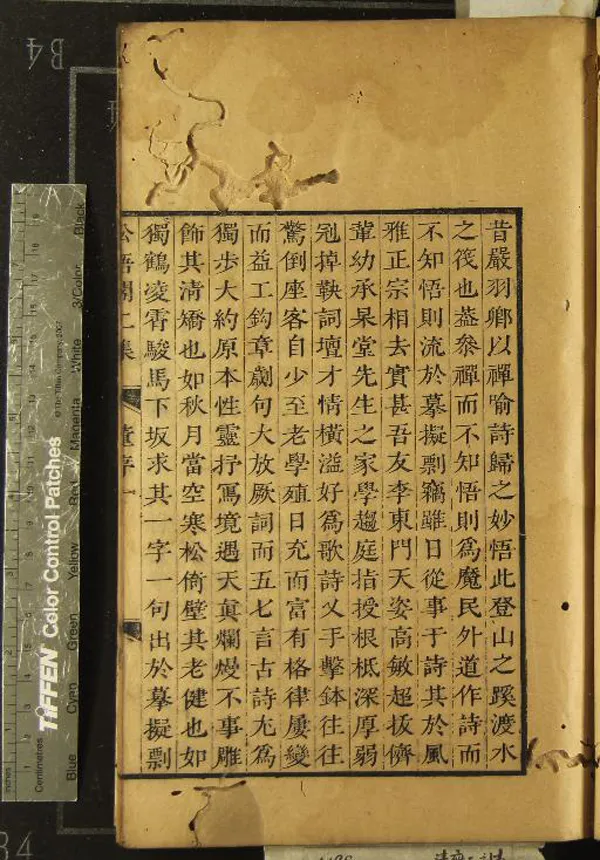 昔嚴羽卿以禪喻詩歸之妙悟此登山之蹊渡水
之筏也葢叅禪而不知悟則為魔民外道作詩而
不知悟則流於摹擬剽竊雖日從事于詩其於風
雅正宗相去實甚吾友李東門天姿高敏超拔儕
輩幼承杲堂先生之家學趨庭指授根柢深厚弱
冠掉鞅詞壇才情橫溢好為歌詩叉手擊鉢往往
驚倒座客自少至老學殖日充而富有格律屢變
而益工鈎章劌句大放厥詞而五七言古詩尤為
獨步大約原本性靈抒寫境遇天真爛熳不事雕
飾其清矯也如秋月當空寒松倚壁其老健也如
獨鶴凌霄駿馬下坂求其一字一句出於摹擬剽
集
一
TIFFEN Color Control Patches
© The Tiffen Company, 2007
Blue Cyan Green Yellow Red Magenta White 3/Color Black
Inches
Centimetres
B4